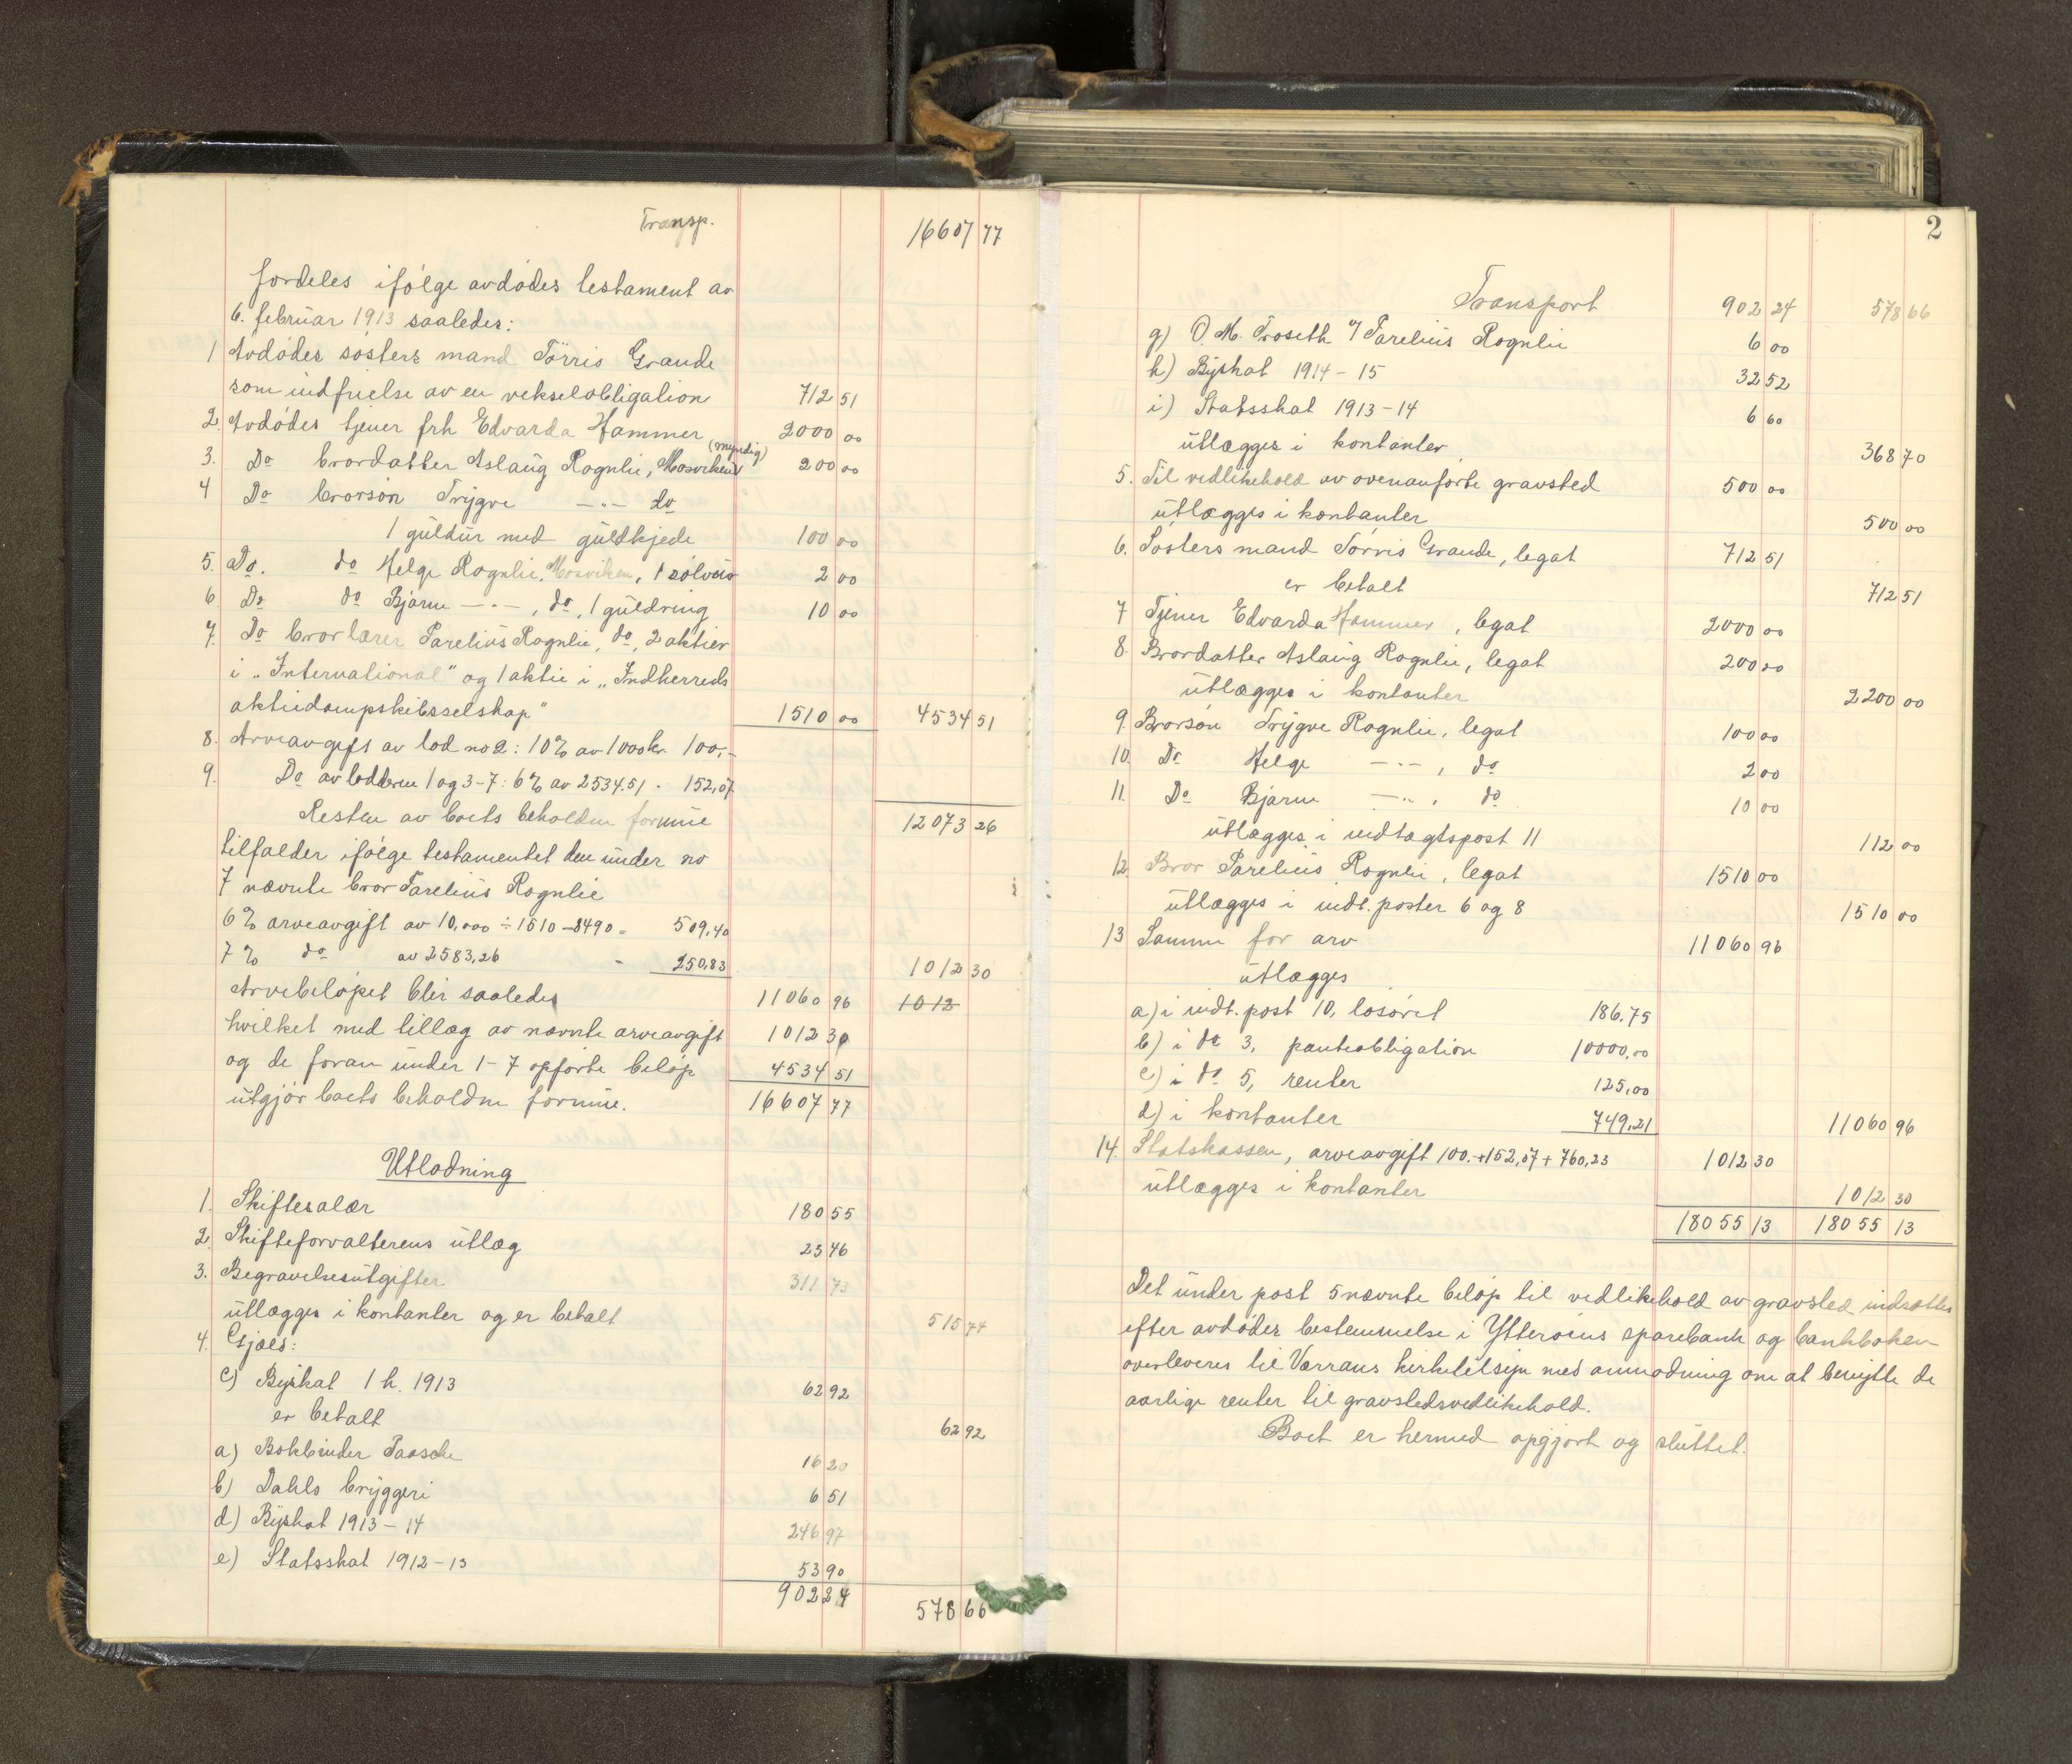 Transp. 16607 77
fordeles ifølge avdødes testament av
6. februar 1913 saaledes:
1 Avdødes søsters mand Törris Grande
som indfrielse av en vekselobligation 712 51
2. Avdødes tjener frk Edvarda Hammer 2000 00
(myndig)
3. Do brordatter Aslaug Rognlie, Mosviken 200 00
4 Do brorsøn Trygve —"— do
1 guldur med guldkjede 100 00
5. Do. do Helge Rognlie, Mosviken, 1 sølvur 2 00
6 Do do Bjarne —"—, do, 1 guldring 10 00
7. Do bror lærer Parelius Rognlie, do, 2 aktier
i „International" og 1 aktie i „Indherreds
aktiedampskibsselskap" 1510 00 4534 51
8. Arveavgift av lod no 2: 10% av 1000 kr. 100,-
9. Do av lodderne 1 og 3-7: 6% av 2534.51 - 152,07
Resten av boets beholdne formue 12073 26
tilfalder ifølge testamentet den under no
7 nævnte bror Parelius Rognlie
6% arveavgift av 10,000 ÷ 1510 - 8490 = 509,40
7% do av 2583,26 - 250,83 1012 30
Arvebeløpet blir saaledes 11060 96 1012
hvilket med tillæg av nævnte arveavgift 1012 30
og de foran under 1-7 opførte beløp 4534 51
utgjør boets beholdne formue. 16607 77
Utlodning
1. Skiftesalær 180 55
2. Skifteforvalterens utlæg 23 46
3. Begravelsesutgifter 311 73
utlægges i kontanter og er betalt 515 74
4. Gjæld:
c) Byskat 1 h. 1913 62 92
er betalt 62 92
a) Bokbinder Paasche 16 20
b) Dahls bryggeri 6 51
d) Byskat 1913-14 246 97
e) Statsskat 1912-13 53 90
902 24 578 66
2
Transport 902 24 578 66
g) O. M. Troseth v/ Parelius Rognlie 6 00
h) Byskat 1914-15 32 52
i) Statsskat 1913-14 6 60
utlægges i kontanter 368 70
5. Til vedlikehold av ovenanførte gravsted 500 00
utlægges i kontanter 500 00
6. Søsters mand Törris Grande, legat 712 51
er betalt 712 51
7 Tjener Edvarda Hammer, legat 2000 00
8. Brordatter Aslaug Rognlie, legat 200 00
utlægges i kontanter 2200 00
9. Brorsøn Trygve Rognlie, legat 100 00
10. Do Helge —"—, do 2 00
11. Do Bjarne —"—, do 10 00
utlægges i indtægtspost 11 112 00
12. Bror Parelius Rognlie, legat 1510 00
utlægges i indt. poster 6 og 8 1510 00
13 Samme for arv 11060 96
utlægges
a) i indt. post 10, løsøret 186.75
b) i do 3, panteobligation 10000.00
c) i do 5, renter 125,00
d) i kontanter 749,21 11060 96
14. Statskassen, arveavgift 100.- + 152,07 + 760,23 1012 30
utlægges i kontanter 1012 30
18055 13 18055 13
Det under post 5 nævnte beløp til vedlikehold av gravsted indsættes
efter avdødes bestemmelse i Ytterøens sparebank og bankboken
overleveres til Værrans kirketilsyn med anmodning om at benytte de
aarlige renter til gravstedsvedlikehold.
Boet er hermed opgjort og sluttet.